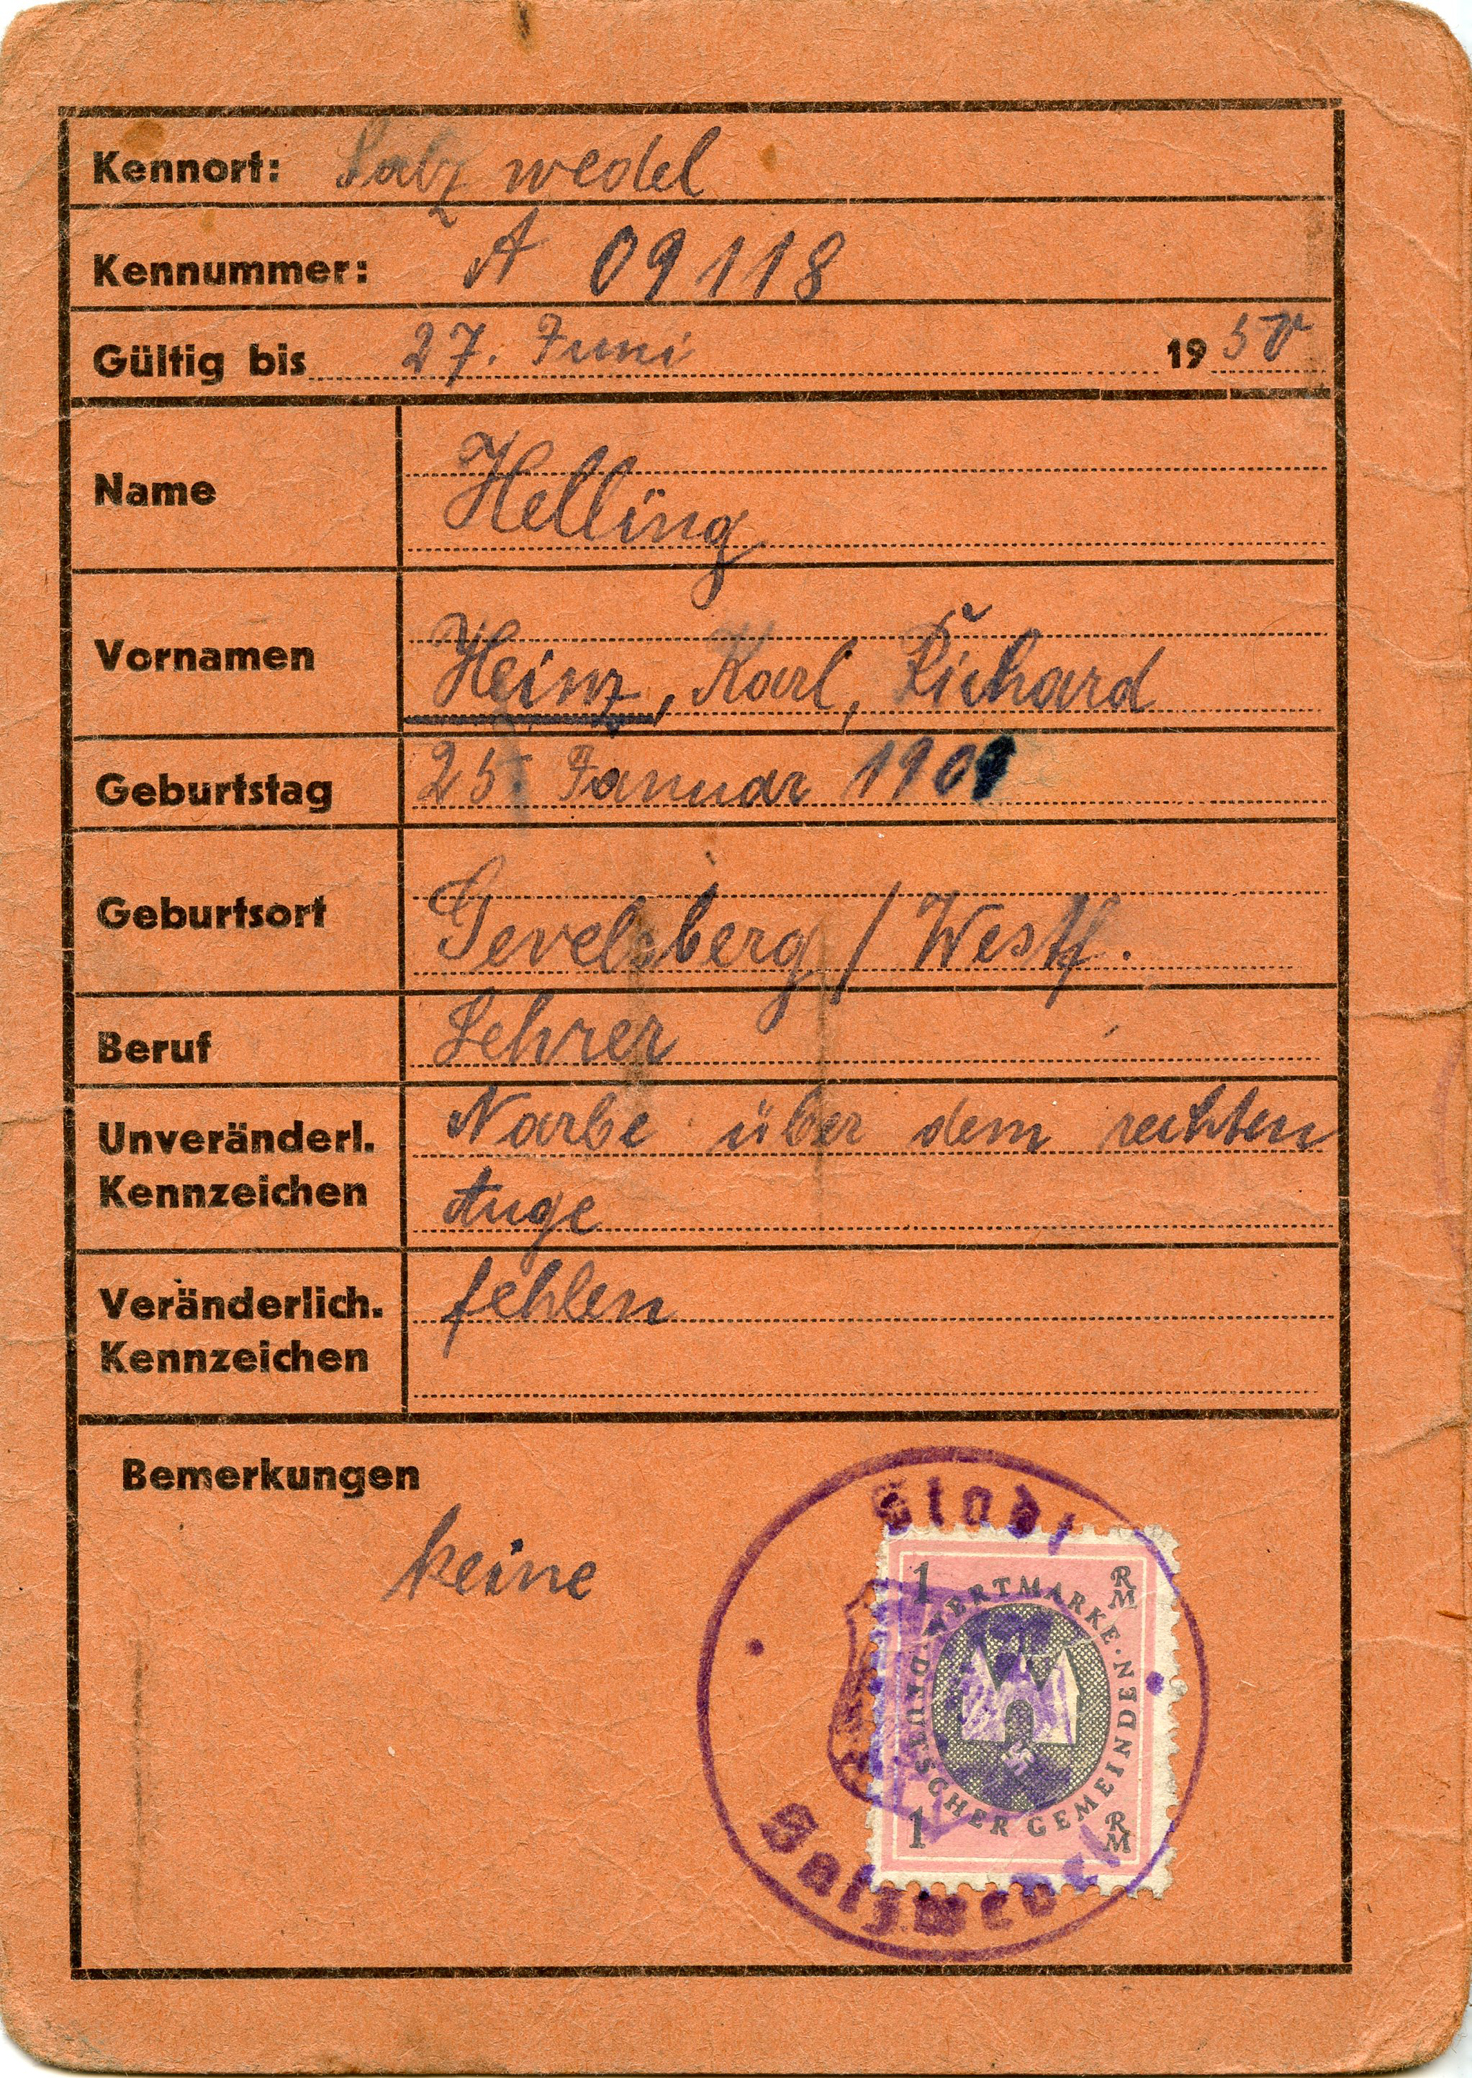 Kennort: Salzwedel
Kennummer: A 09118
Gültig bis 27. Juni 1950
Name Helling
Vornamen Heinz, Karl, Richard
Geburtstag 25. Januar 1901
Geburtsort Gevelsberg / Westf.
Beruf Lehrer
Unveränderl. Kennzeichen Narbe über dem rechten
Auge
Veränderlich. Kennzeichen fehlen
Bemerkungen
keine
Stadt
1 RM
WERTMARKE · DEUTSCHER GEMEINDEN ·
1 RM
Salzwedel